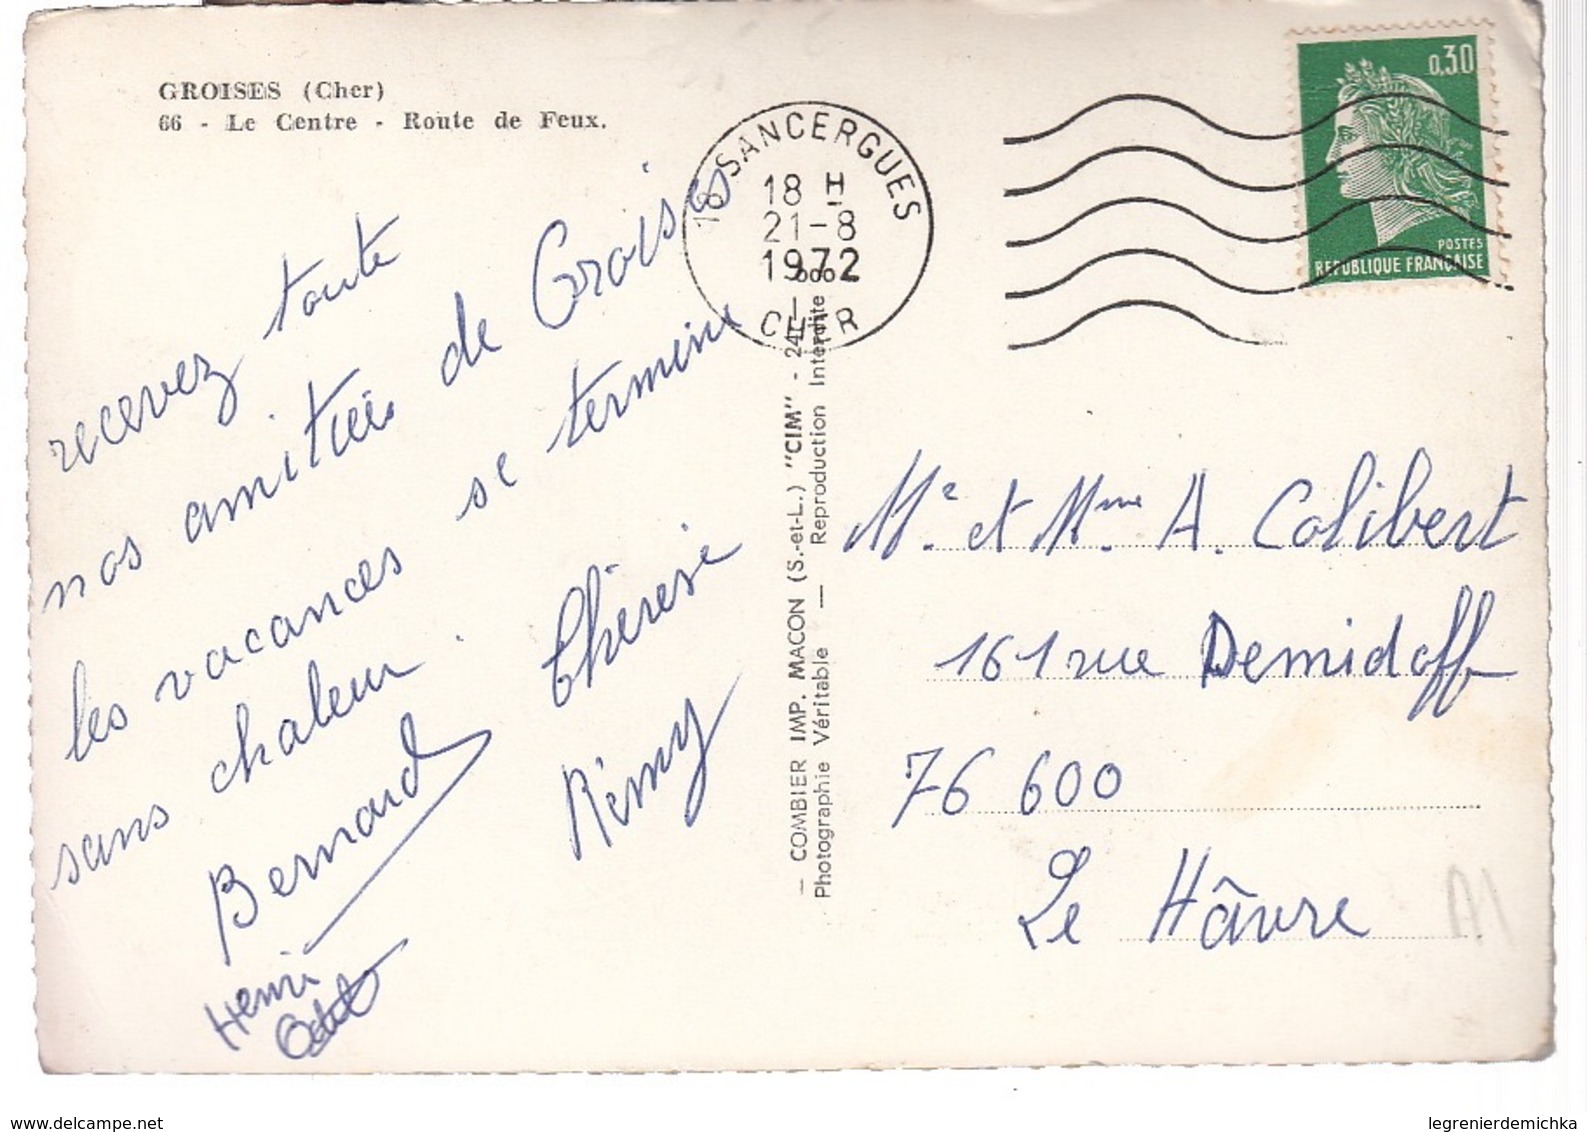 GROISES (Cher)
66 - Le Centre - Route de Feux.
18 SANCERGUES
18 H
21-8
1972
CHER
0,30
POSTES
REPUBLIQUE FRANÇAISE
recevez toute
nos amitiées de Groises
les vacances se termine
sans chaleur.
Thérèse
Bernard
Rémy
Henri
— COMBIER IMP. MACON (S.-et-L.) "CIM" -
Photographie Véritable — Reproduction Interdite
Mr. et Mme. A. Colibert
161 rue Demidoff
76 600
Le Hâvre
A1
www.delcampe.net
legrenierdemichka